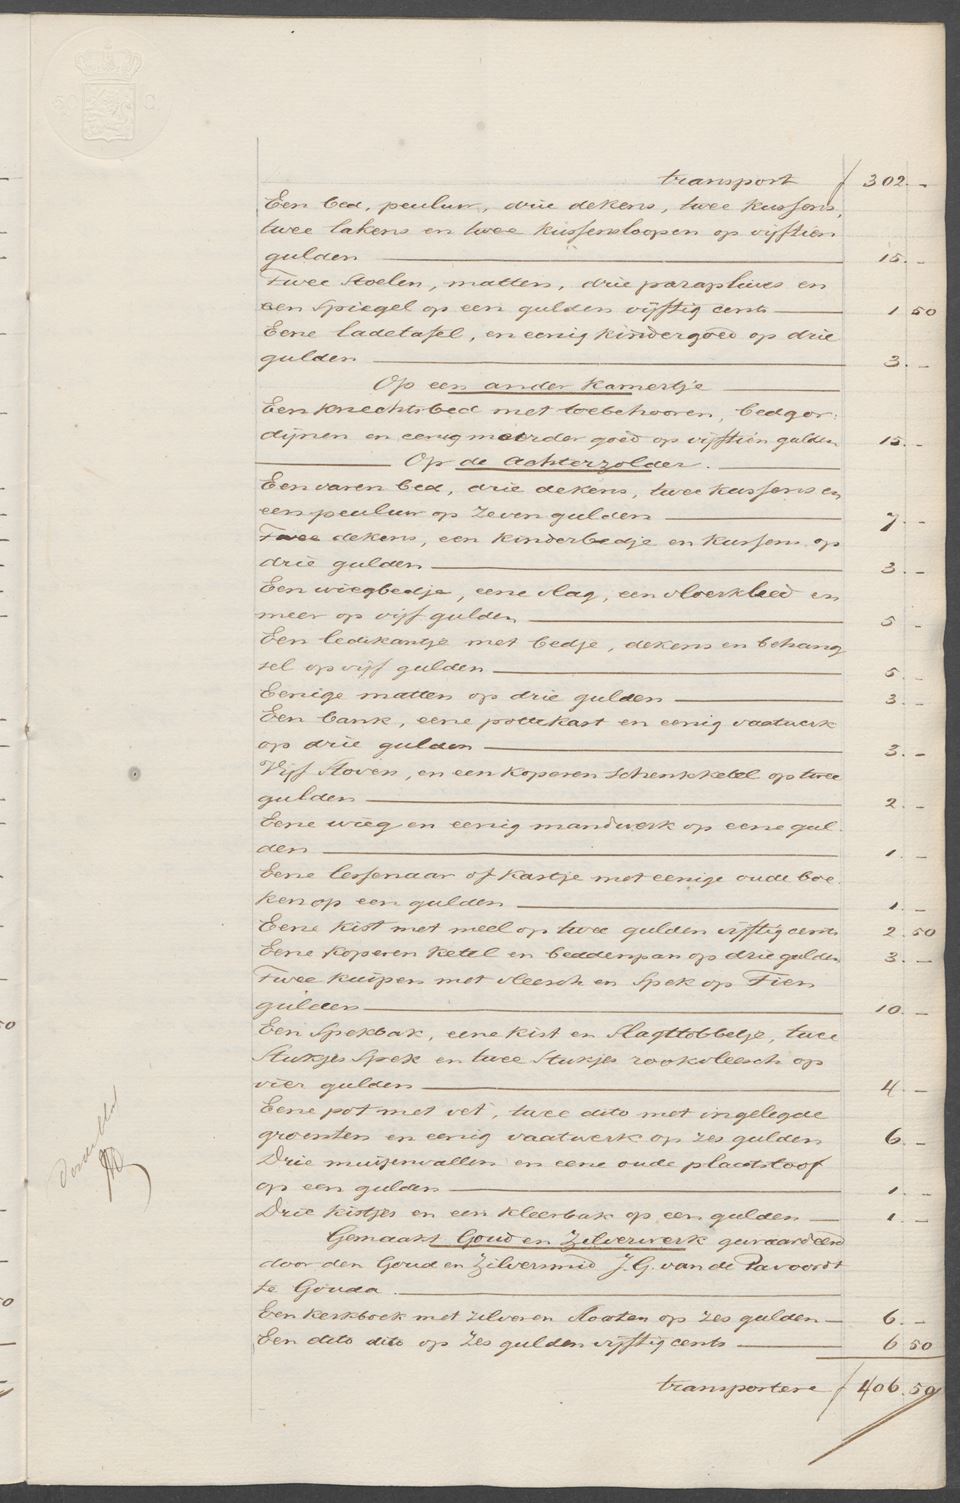 50 C.
transport f 302.-
Een bed, peuluw, drie dekens, twee kussens,
twee lakens en twee kussensloopen op vijftien
gulden 15.-
Twee stoelen, matten, drie parapluies en
een spiegel op een gulden vijftig cents 1 50
Eene ladetafel, en eenig kindergoed op drie
gulden 3.-
Op een ander kamertje
Een knechtsbed met toebehooren, bedgor:
dijnen en eenig meerder goed op vijftien gulden 15.-
Op de achterzolder.
Een varen bed, drie dekens, twee kussens en
een peuluw op zeven gulden 7.-
Twee dekens, een kinderbedje en kussens op
drie gulden 3.-
Een wiegbedje, eene vlag, een vloerkleed en
meer op vijf gulden 5.-
Een ledikantje met bedje, dekens en behang
sel op vijf gulden 5.-
Eenige matten op drie gulden 3.-
Een bank, eene pottekast en eenig vaatwerk
op drie gulden 3.-
Vijf stoven, en een koperen schenkketel op twee
gulden 2.-
Eene wieg en eenig mandwerk op eene gul
den 1.-
Eene lessenaar of kastje met eenige oude boe
ken op een gulden 1.-
Eene kist met meel op twee gulden vijftig cents 2.50
Eene koperen ketel en beddenpan op drie gulden 3.-
Twee kuipen met vleesch en spek op Tien
gulden 10.-
Een spekbak, eene kist en slagttobbetje, twee
stukjes spek en twee stukjes rookvleesch op
vier gulden 4.-
Eene pot met vet, twee dito met ingelegde
groenten en eenig vaatwerk op zes gulden 6.-
Drie muizenvallen en eene oude plaatsloof
op een gulden 1.-
Drie kistjes en een kleerbak op een gulden 1.-
Gemaakt Goud en Zilverwerk gewaardeerd
door den Goud en Zilversmid J.G. van de Pavoordt
te Gouda.
Een kerkboek met zilveren slooten op zes gulden 6.-
Een dito dito op zes gulden vijftig cents 6 50
transportere f 406.50